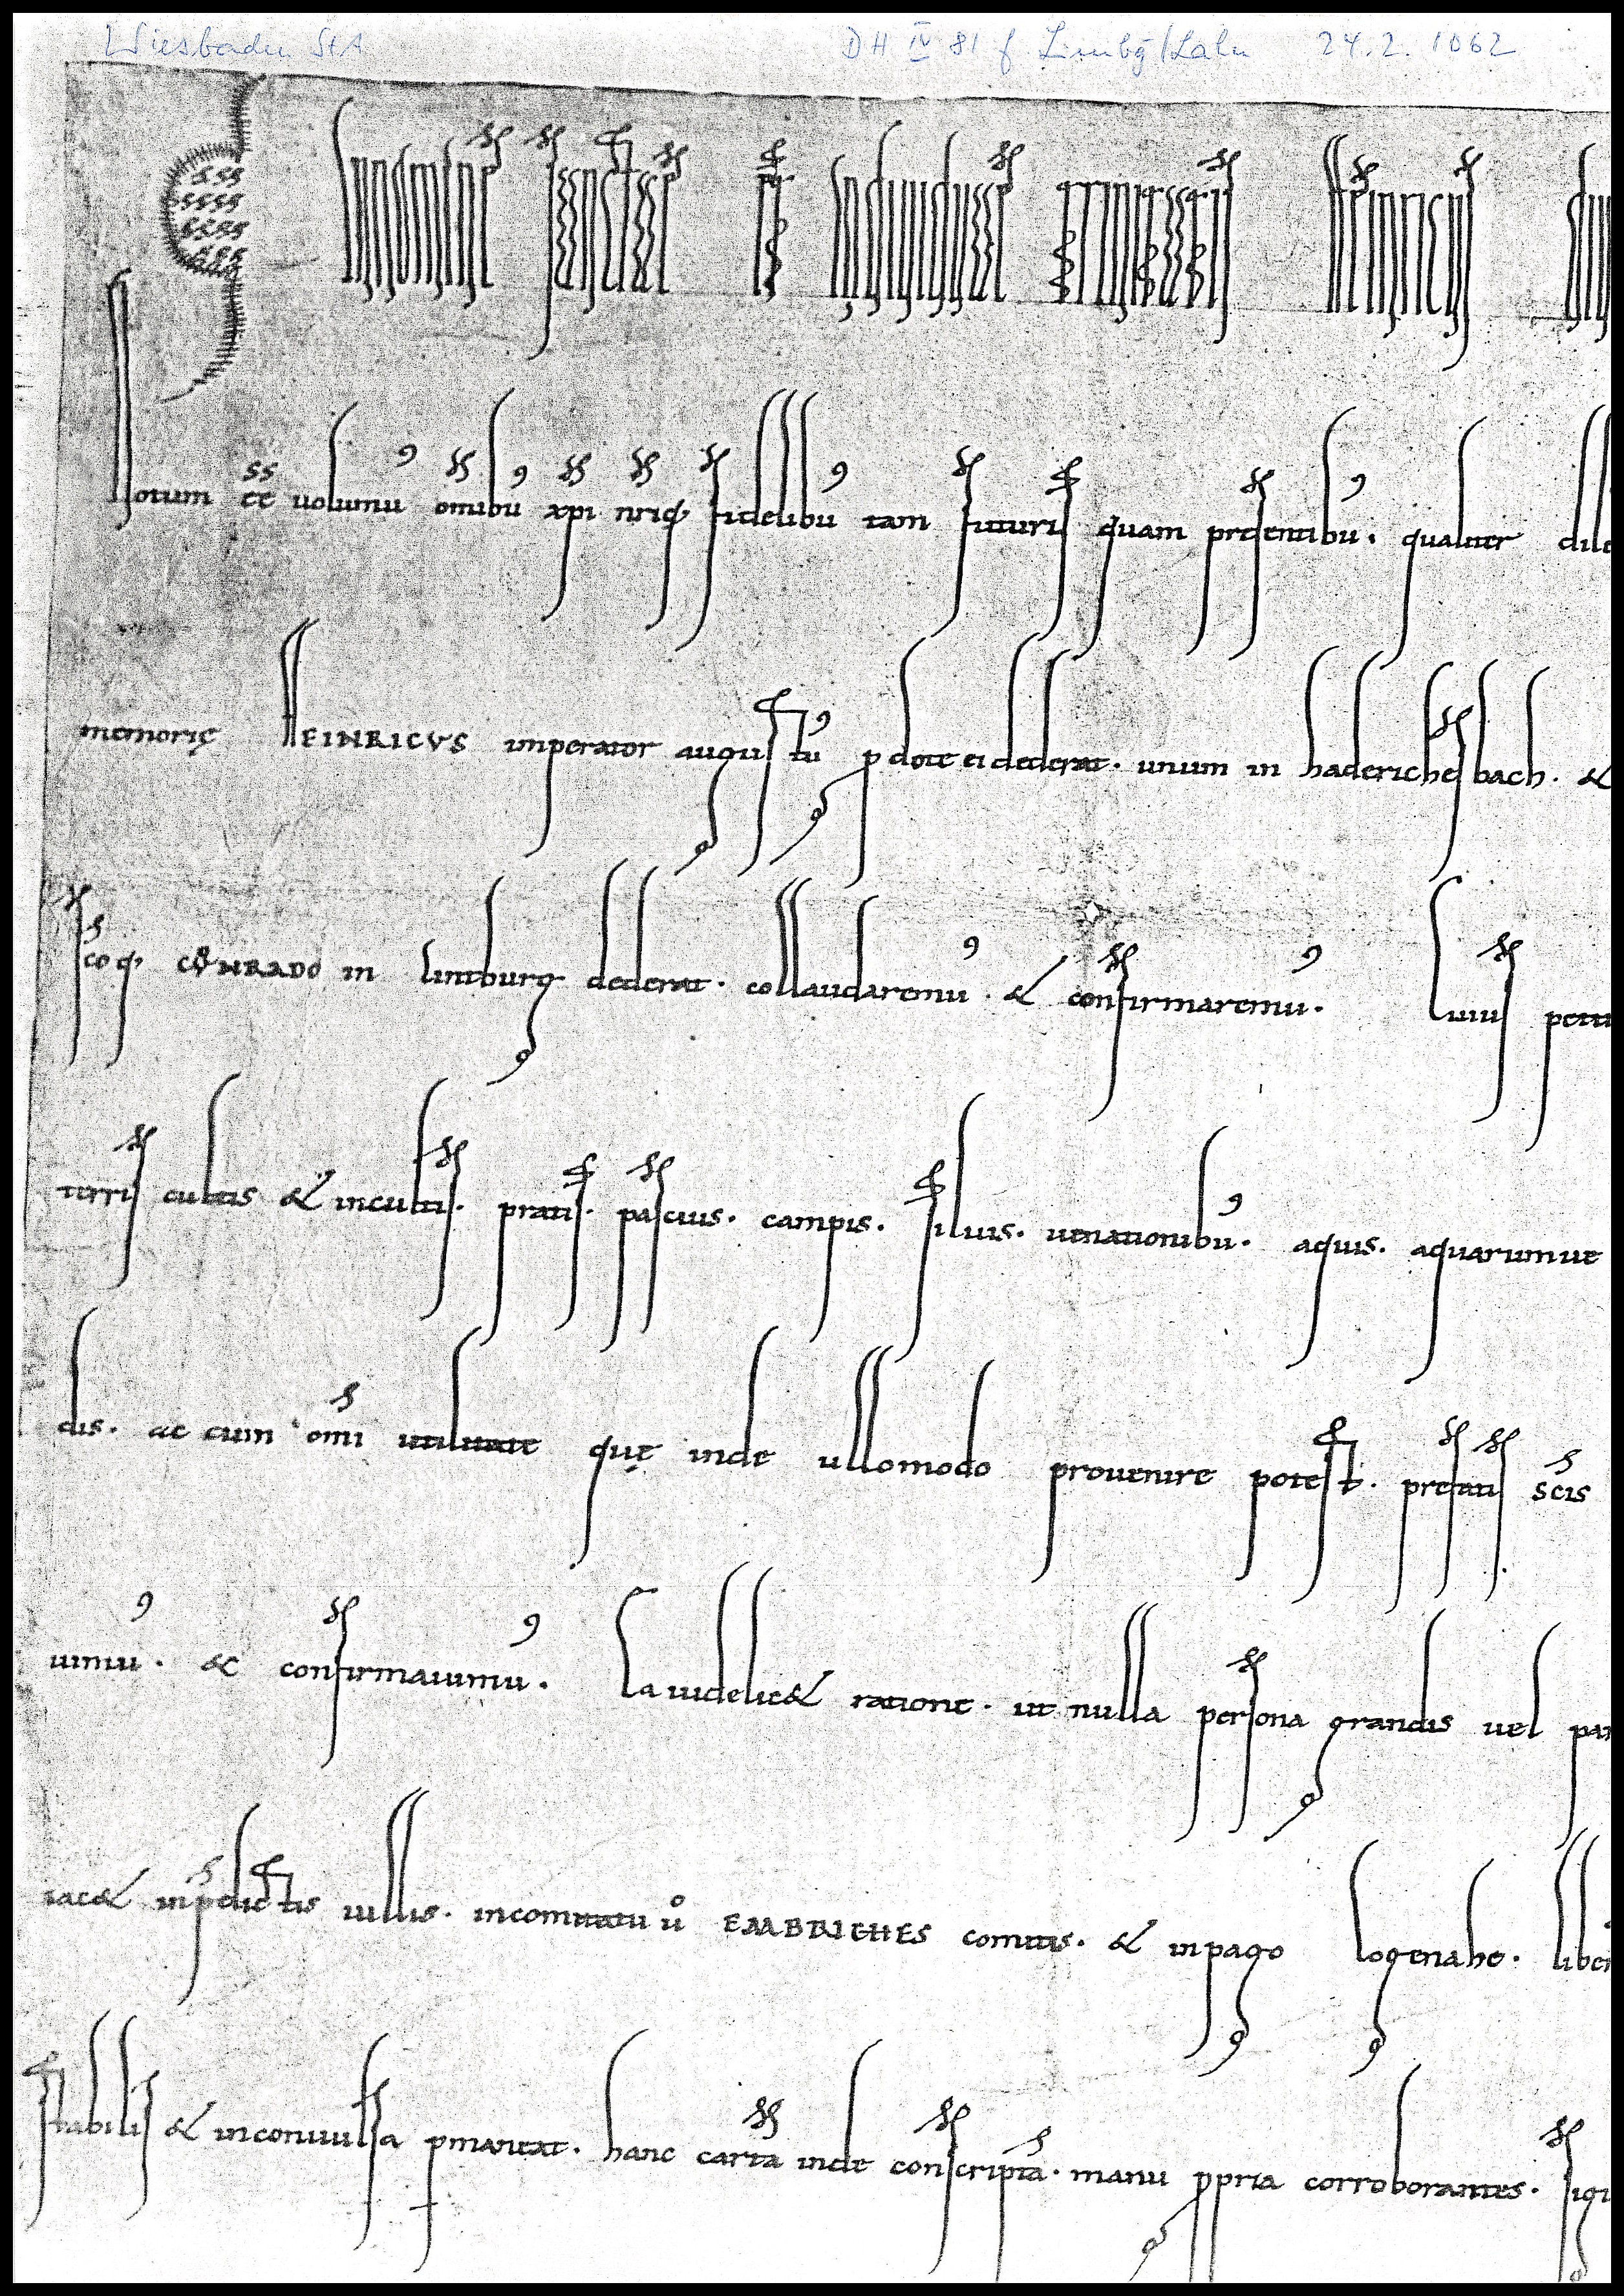 Wiesbaden StA DH IV 81 f Limbg/Lahn 24.2.1062
In nomine sanctę et individuę trinitatis Heinricus
Notum ee uolumu⁹ omibu⁹ xpi nriq; fidelibu⁹ tam futuris quam presentibu⁹. qualiter dile
memorię HEINRICVS imperator augustu⁹ p dote ei dederat. unum in haderichesbach. &
scoq; CVͦNRADO in limburg dederat. collaudaremu⁹. & confirmaremu⁹. Cuius peti
terris cultis & incultis. pratis. pascuis. campis. siluis. uenationibu⁹. aquis. aquarumue
dis. ac cum omi utilitate quę inde ullomodo prouenire potest. prefatis scis
uimu⁹. & confirmauimu⁹. Ea uidelic& ratione. ut nulla persona grandis uel par
iac& in pdictis uillis. in comitatu uͦ EMBRICHES comitis. & in pago Logenahe. liber
stabilis & inconuulsa pmaneat. hanc carta inde conscripta. manu ppria corroborantes. sigi